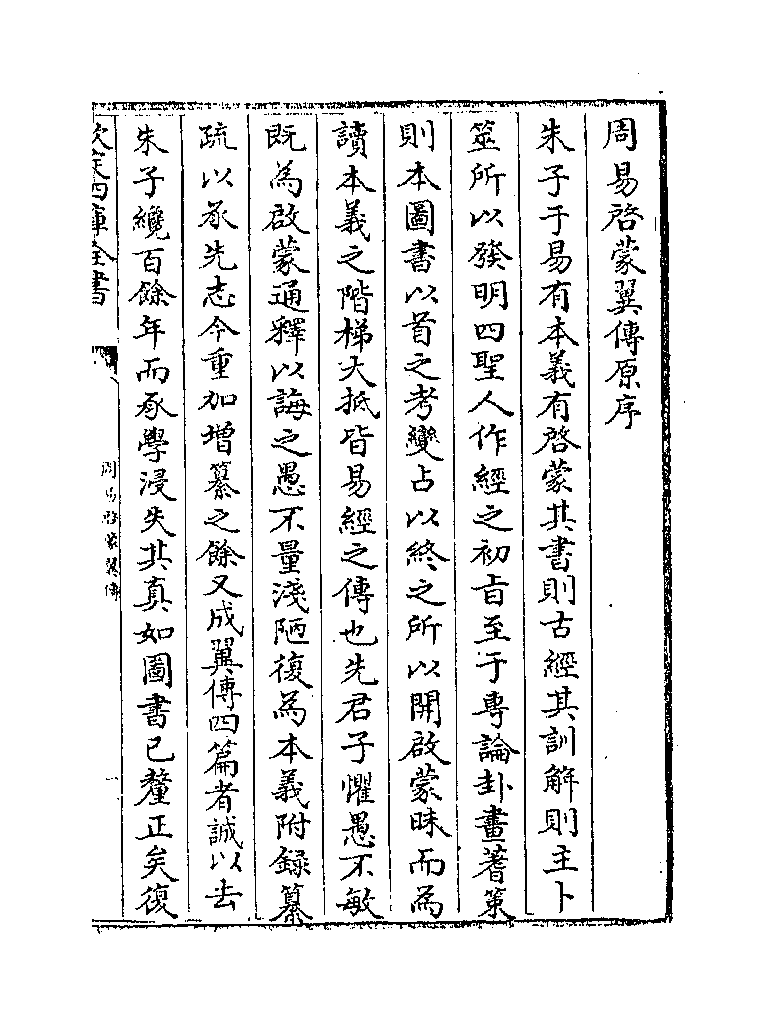 周易啓蒙翼傳原序
朱子于易有本義有啓蒙其書則古經其訓解則主卜
筮所以發明四聖人作經之初旨至于專論卦畫蓍策
則本圖書以首之考變占以終之所以開啟蒙昧而為
讀本義之階梯大抵皆易經之傳也先君子懼愚不敏
既為啟蒙通釋以誨之愚不量淺陋復為本義附録纂
疏以承先志今重加增纂之餘又成翼傳四篇者誠以去
朱子纔百餘年而承學浸失其真如圖書已釐正矣復
欽定四庫全書
周易啓蒙翼傳
一